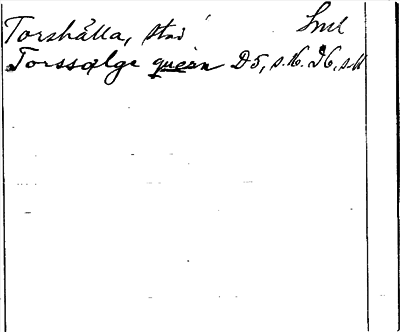 Torshälla, stad Sml
Torssælge quærn D5, s. 16. I6, s. 11